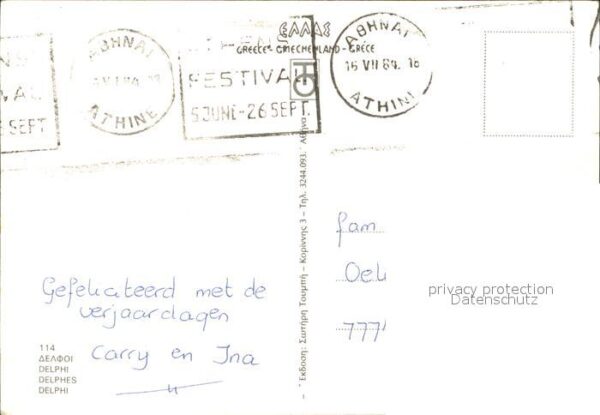 ΕΛΛΑΣ
GREECE - GRIECHENLAND - GRECE
ΑΘΗΝΑΙ
ATHINE
ATHENS
FESTIVAL
5 JUNE-26 SEPT.
ΑΘΗΝΑΙ
15 VII 84. 18
ATHINE
SEPT
Εκδοση: Σωτήρη Τουμπή - Κορίννης 3 - Τηλ. 3244.093. Αθήνα
fam
Oel
777
privacy protection
Datenschutz
Gefeliciteerd met de
verjaardagen
Carry en Ina
114
ΔΕΛΦΟΙ
DELPHI
DELPHES
DELPHI